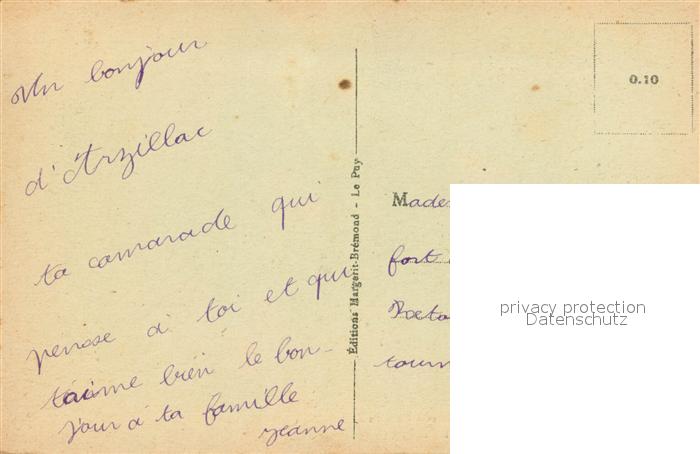 Un bonjour
d'Arzillac
ta camarade qui
pense à toi et qui
taime bien le bon-
jour a ta famille
Jeanne
Éditions Margerit-Brémond - Le Puy
0.10
Made
fort
tourn
privacy protection
Datenschutz